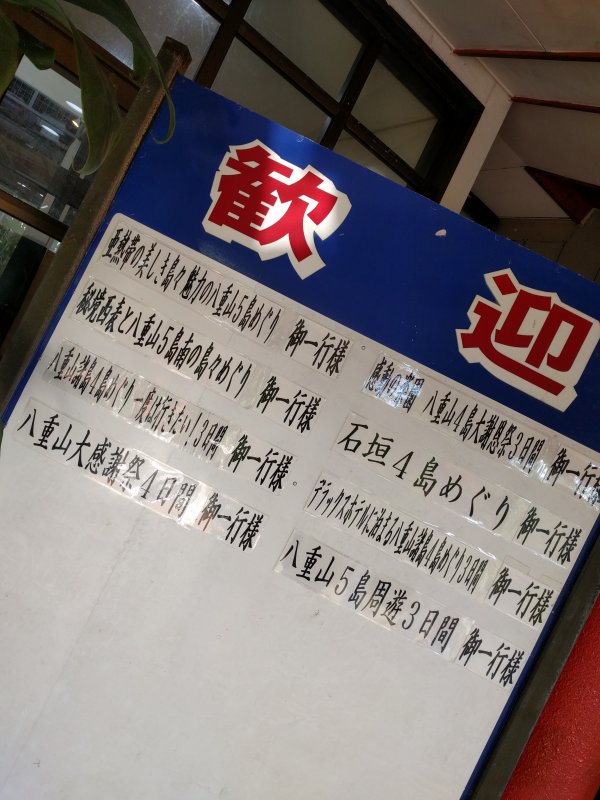 歓迎
亜熱帯の美しき島々魅力の八重山5島めぐり 御一行様
秘境西表と八重山5島南の島々めぐり 御一行様
八重山諸島4島めぐり一度は行きたい!3日間 御一行様
八重山大感謝祭4日間 御一行様
感動の楽園 八重山4島大謝恩祭3日間 御一行様
石垣4島めぐり 御一行様
デラックスホテルに泊まる八重山諸島4島めぐり3日間 御一行様
八重山5島周遊3日間 御一行様